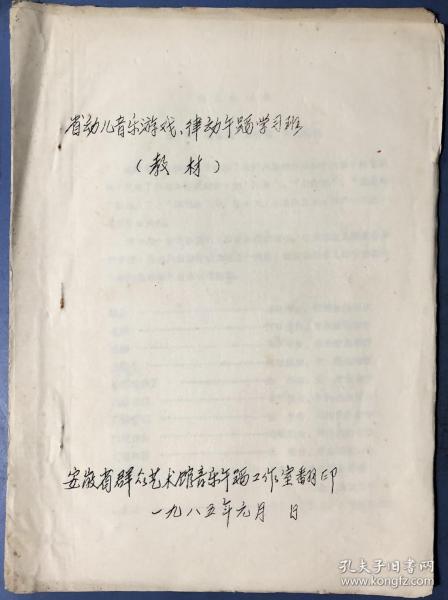 省幼儿音乐游戏、律动午蹈学习班
（教材）
安徽省群众艺术馆音乐午蹈工作室翻印
一九八五年元月 日
孔夫子旧书网